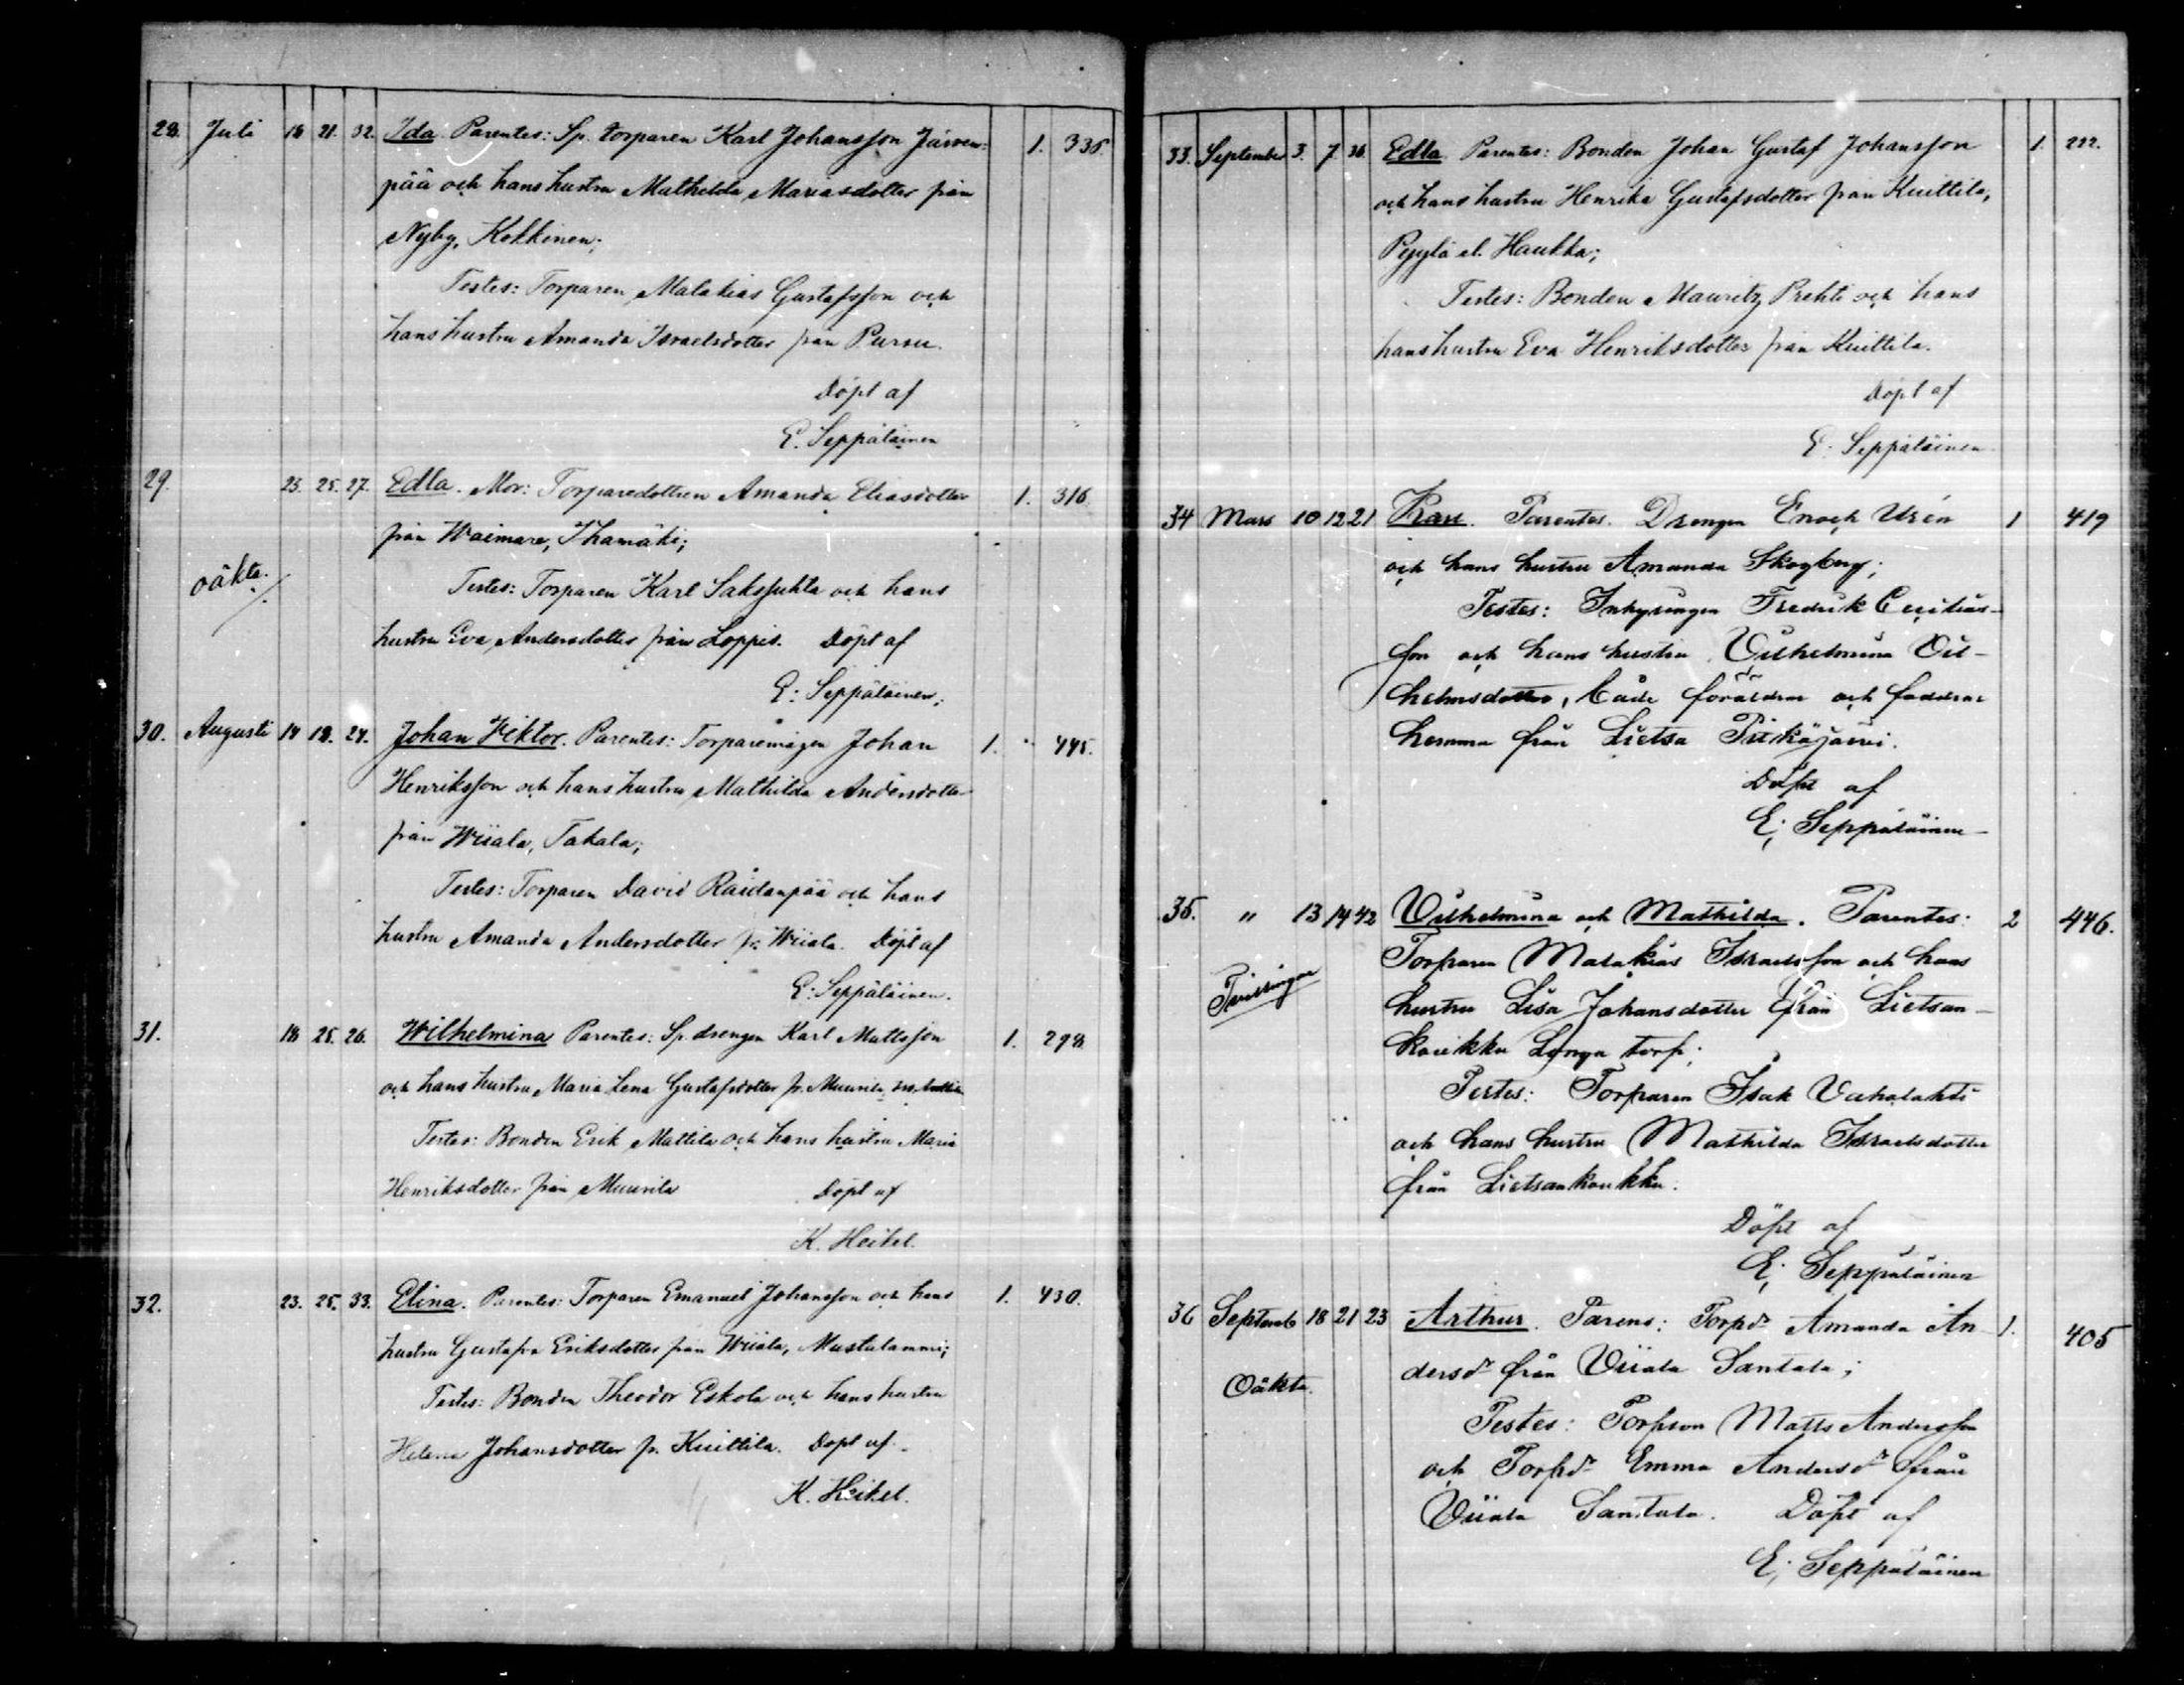 28. Juli 18 21. 32. Ida. Parentes: Sp. torparen Karl Johansson Järven- 1. 335.
pää och hans hustru Mathilda Mariasdotter från
Nyby, Kokkinen;
Testes: Torparen Malakias Gustafsson och
hans hustru Amanda Israelsdotter från Pursu.
Döpt af
E. Seppäläinen
29. 23. 25. 27. Edla. Mor: Torparedottren Amanda Eliasdotter 1. 316
från Waimare, Ihamäki;
oäkta.
Testes: Torparen Karl Saksjuhta och hans
hustru Eva Andersdotter från Loppis. Döpt af
E: Seppäläinen;
30. Augusti 14 18. 24. Johan Viktor. Parentes: Torparemågen Johan 1. 445.
Henriksson och hans hustru Mathilda Andersdotter
från Wiiala, Takala;
Testes: Torparen David Raidanpää och hans
hustru Amanda Andersdotter fr. Wiiala. Döpt af
E: Seppäläinen.
31. 18 25. 26. Wilhelmina Parentes: Sp. drengen Karl Mattsson 1. 298
och hans hustru Maria Lena Gustafsdotter fr. Muurila
Testes: Bonden Erik Mattila och hans hustru Maria
Henriksdotter från Muurila Döpt af
K. Heikel.
32. 23. 25. 33. Elina. Parentes: Torparen Emanuel Johansson och hans 1. 430.
hustru Gustafva Eriksdotter från Wiiala, Mustalammi;
Testes: Bonden Theodor Eskola och hans hustru
Helena Johansdotter fr. Kuittila. Döpt af
K. Heikel.
33. September 3. 7. 36. Edla. Parentes: Bonden Johan Gustaf Johansson 1. 222.
och hans hustru Henrika Gustafsdotter från Kuittila,
Pyylä el. Haukka;
Testes: Bonden Mauritz Prehti och hans
hans hustru Eva Henriksdotter från Kuittila.
Döpt af
E: Seppäläinen
34 Mars 10 12 21 Parentes. Drengen Enoch Urén 1 419
och hans hustru Amanda Skogberg;
Testes: Inhysingen Fredrik
son och hans hustru Vilhelmina Vil-
helmsdotter, både föräldrar och faddrar
hemma från Lietsa Pitkäjärvi.
Döpt af
E; Seppäläinen
35. " 13 14 42 Vilhelmina och Mathilda. Parentes: 2 446.
Torparen Malakias Israelsson och hans
Tvillingar
hustru Lisa Johansdotter från Lietsan-
koukku Longa torp;
Testes: Torparen Isak Vahalahti
och hans hustru Mathilda Israelsdotter
från Lietsankoukku.
Döpt af
E; Seppäläinen
36 Septemb 18 21 23 Arthur. Parens: Torpdr Amanda An- 1. 405
dersdr från Viiala Santala;
Oäkta.
Testes: Torpson Matts Andersson
och Torpdr Emma Andersdr från
Viiala Santala. Döpt af
E; Seppäläinen